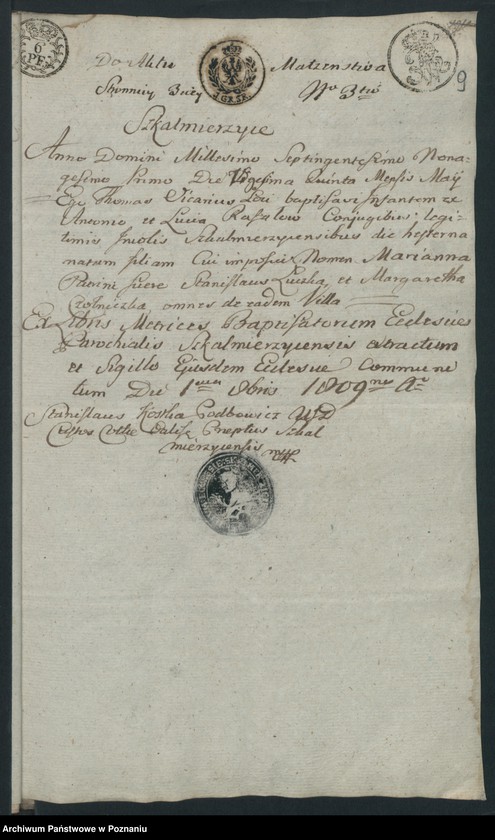 6
PF.
4 GR. SR.
9
Do Aktu Małżenstwa
No 3tio
Szkalmierzyce
Anno Domini Millesimo Septingentesimo Nona-
gesimo Primo Die Vigesima Quinta Mensis Maij
Ego Thomas Vicarius Loci baptisavi Infantem ex
Antonio et Lucia Conjugibus legi-
timis Incolis Szkalmierzycensibus die hesterna
natam filiam Cui imposui Nomen Marianna
Patrini fuere Stanislaus Luczka, et Margaretha
omnes de eadem Villa
Ex Libris Metrices Baptisatorum Ecclesiae
Parochialis Szkalmierzycensis extractum
et Sigillo Ejusdem Ecclesiae Commune
tum Die 1ma 8bris 1809no
Stanislaus Kostka Godbowicz
Praeptus Szkal
mierzycensis mpp
Archiwum Państwowe w Poznaniu